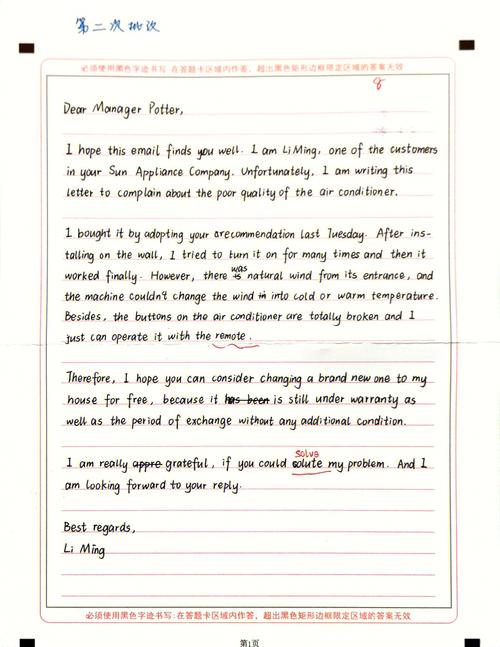 第二次批改
必须使用黑色字迹书写:在答题卡区域内作答,超出黑色矩形边框限定区域的答案无效
8
Dear Manager Potter,
I hope this email finds you well. I am Li Ming, one of the customers
in your Sun Appliance Company. Unfortunately, I am writing this
letter to complain about the poor quality of the air conditioner.
I bought it by adopting your arecommendation last Tuesday. After ins-
talling on the wall, I tried to turn it on for many times and then it
worked finally. However, there was natural wind from its entrance, and
the machine couldn't change the wind in into cold or warm temperature.
Besides, the buttons on the air conditioner are totally broken and I
just can operate it with the remote.
Therefore, I hope you can consider changing a brand new one to my
house for free, because it has been is still under warranty as
well as the period of exchange without any additional condition.
solve
I am really appre grateful, if you could solute my problem. And I
am looking forward to your reply.
Best regards,
Li Ming
必须使用黑色字迹书写:在答题卡区域内作答,超出黑色矩形边框限定区域的答案无效
第1页